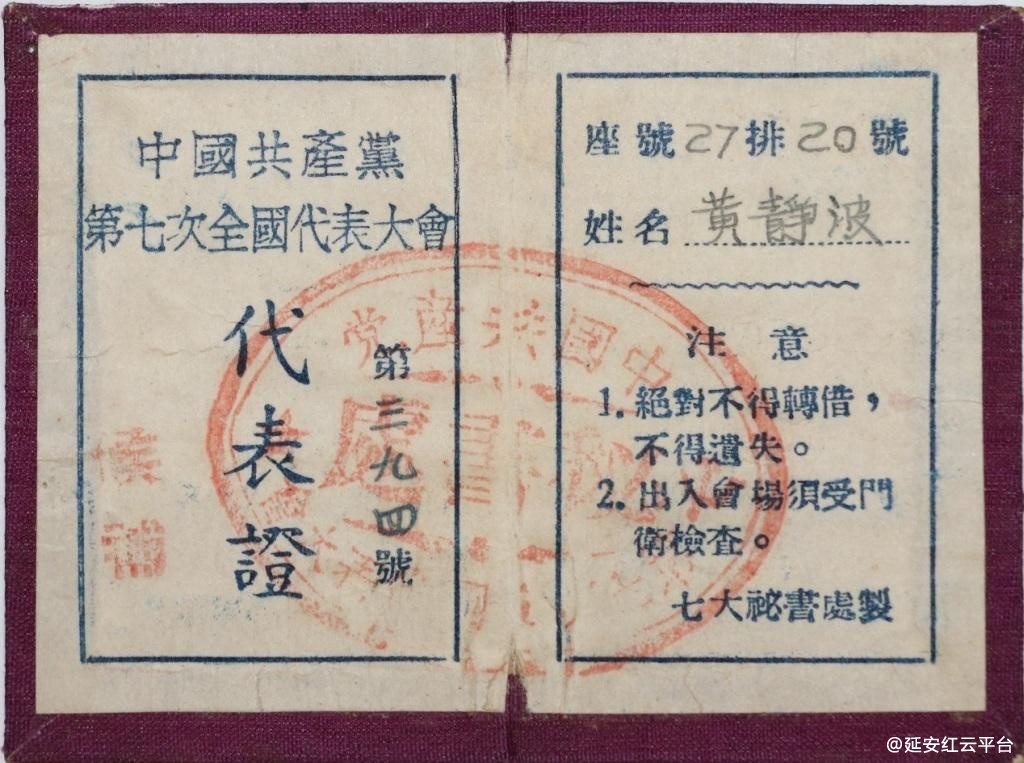 中國共產黨
第七次全國代表大會
代表證
第三九四號
座號27排20號
姓名 黄靜波
注意
1. 絕對不得轉借，
不得遺失。
2. 出入會場須受門
衛檢查。
七大祕書處製
中國共產党
@延安红云平台